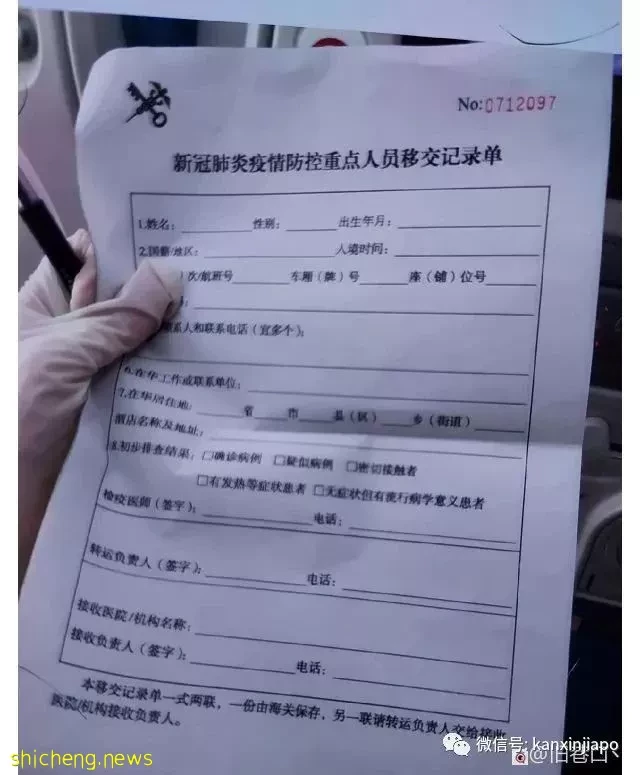 No:0712097
新冠肺炎疫情防控重点人员移交记录单
1.姓名: 性别: 出生年月:
2.国籍/地区: 入境时间:
次/航班号 车厢(牌)号 座(铺)位号
系人和联系电话(宜多个):
6.在华工作或联系单位:
7.在华居住地: 省 市 县(区) 乡(街道)
酒店名称及地址:
8.初步排查结果: □确诊病例 □疑似病例 □密切接触者
□有发热等症状患者 □无症状但有流行病学意义患者
检疫医师(签字): 电话:
转运负责人(签字): 电话:
接收医院/机构名称:
接收负责人(签字): 电话:
本移交记录单一式两联,一份由海关保存,另一联请转运负责人交给接收
医院/机构接收负责人。
shicheng.news
微信号: kanxinjiapo
@旧巷口